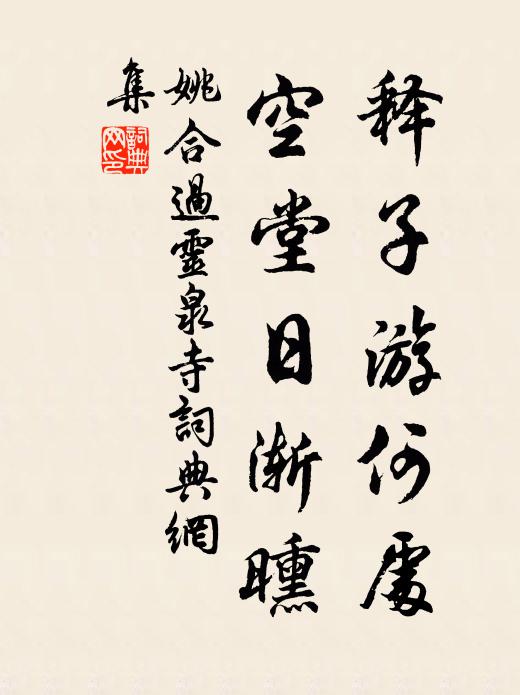 释子游何處
空堂日渐曛
姚合過靈泉寺詞典網
集
詞典網印